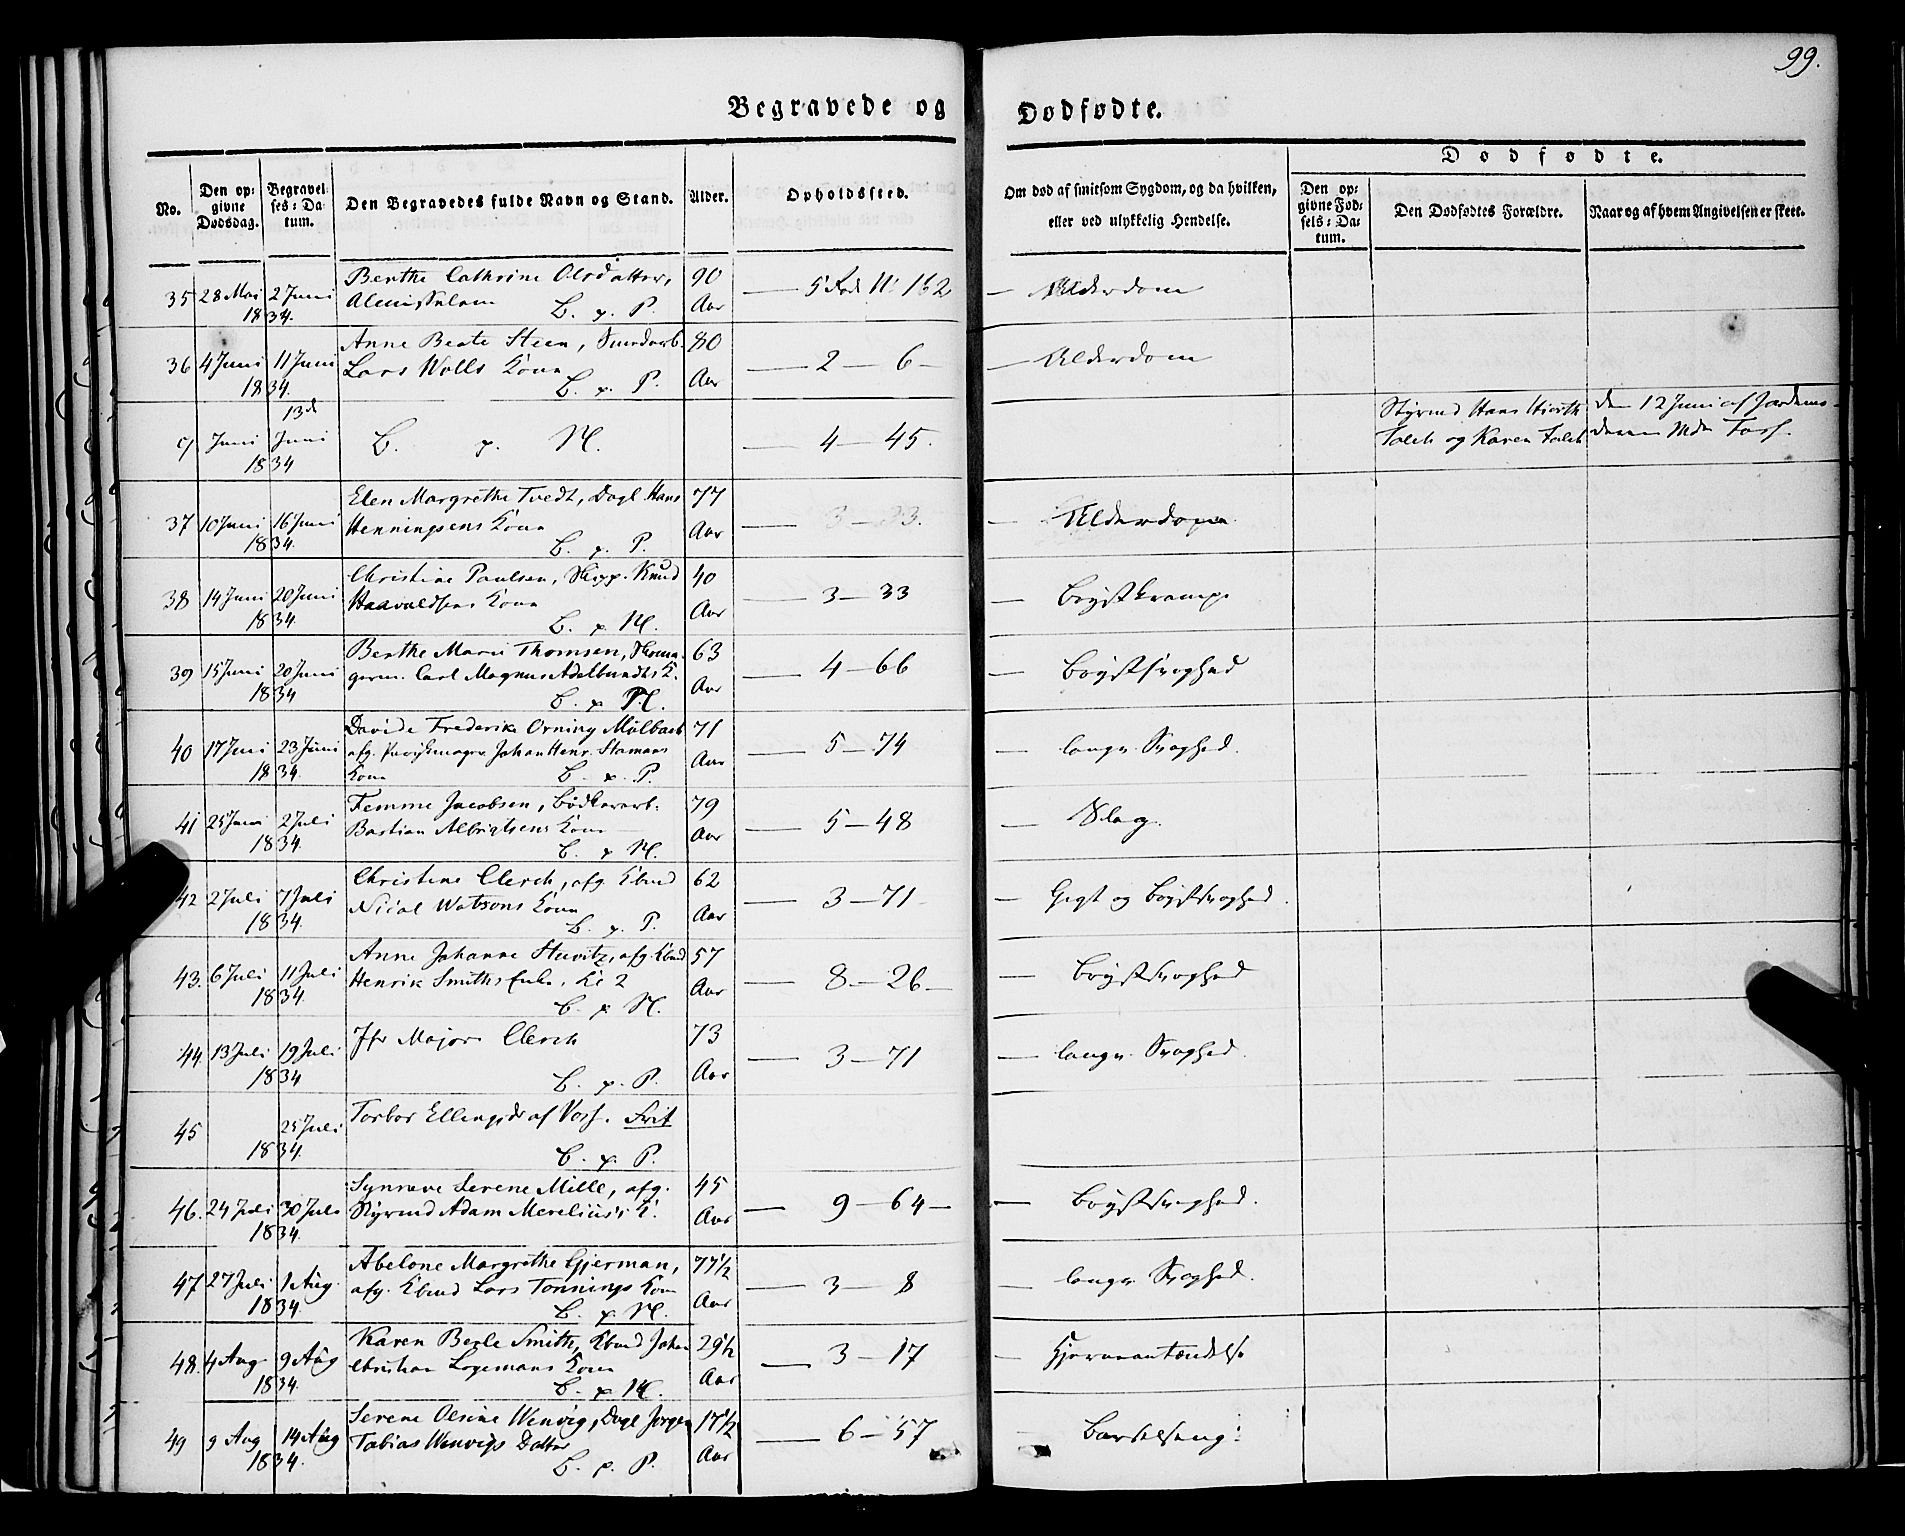 99.
Begravede og Dødfødte.
No.
Den opgivne Dødsdag.
Begravelses-Datum.
Den Begravedes fulde Navn og Stand.
Alder.
Opholdssted.
Om død af smitsom Sygdom, og da hvilken, eller ved ulykkelig Hendelse.
Dødfødte.
Den opgivne Fødsels-Datum.
Den Dødfødtes Forældre.
Naar og af hvem Angivelsen er skeet.
35 28 Mai 2 Juni Berthe Cathrine Olsdatter, 90 5 Rode N 162 Alderdom
1834. Almisselem B. p. P. Aar
36 4 Juni 11 Juni Anne Beate Steen, 80 2 — 6 Alderdom
1834. Lars Wolls Kone B. p. P. Aar
13d
Juni Juni B. p. N. 4 — 45. Styrmd Hans Hiorth den 12 Juni af Jordemo-
1834 Falch og Karen Falch deren Md
37 10 Juni 16 Juni Elen Margrethe Tvedt, Dagl. Hans 77 3 — 33. Alderdom
1834. Henningsens Kone B. p. P. Aar
38 14 Juni 20 Juni Christine Paulsen, Skipp. Knud 40 3 — 33 Brystkrampe
1834. Haavaldsens Kone B. p. N. Aar
39 15 Juni 20 Juni Berthe Marie Thomsen, Skoma- 63 4 — 66 Brystsvaghed
1834 germ. Carl Magnus Adelbundts K. B. p. N. Aar
40 17 Juni 23 Juni Davide Frederike Orning Mølbach 71 5 — 74 langv. Svaghed.
1834. afg. Johan Henr. Stamans Aar
Kone B. p. P.
41 25 Juni 2 Juli Femme Jacobsen, Bødkerarb. 79 5 — 48 Slag.
1834. Bastian Albrigtsens Kone B. p. N. Aar
42 2 Juli 7 Juli Christine Clerch, afg. Kbmd 62 3 — 71 Gigt og Brystsvaghed.
1834. Nicol Watsons Kone B. p. P. Aar
43. 6 Juli 11 Juli Anne Johanne Stuvitz, afg Kbmd 57 8 — 26 Brystsvaghed
1834. Henrik Smiths Enke, Kl 2 B. p. N. Aar
44. 13 Juli 19 Juli Jfr Major Clerch 73 3 — 71 langv. Svaghed.
1834 B. p. P. Aar
45 25 Juli Torbor Ellingsdr af Voss. Frit
1834. B. p. P.
46. 24 Juli 30 Juli Synneve Serene Mille, afg. 45 9 — 64 Brystsvaghed.
1834. Styrmd Adam Merelius's K. Aar
47 27 Juli 1 Aug. Abelone Margrethe Gjerman, 77½ 3 — 8 langv. Svaghed.
1834. afg. Kbmd Lars Tonnings Kone B. p. N. Aar
48. 4 Aug 9 Aug Karen Berle Smith, Kbmd Johan 29½ 3 — 17 Hjerneantændelse
1834. Christian Logemans Kone B. p. N. Aar
49 9 Aug 14 Aug Serene Olsine Wenvig, Dagl Jørgen 17½ 6 — 57 Barselseng.
1834. Tobias Wenvigs Datter B. p. P. Aar